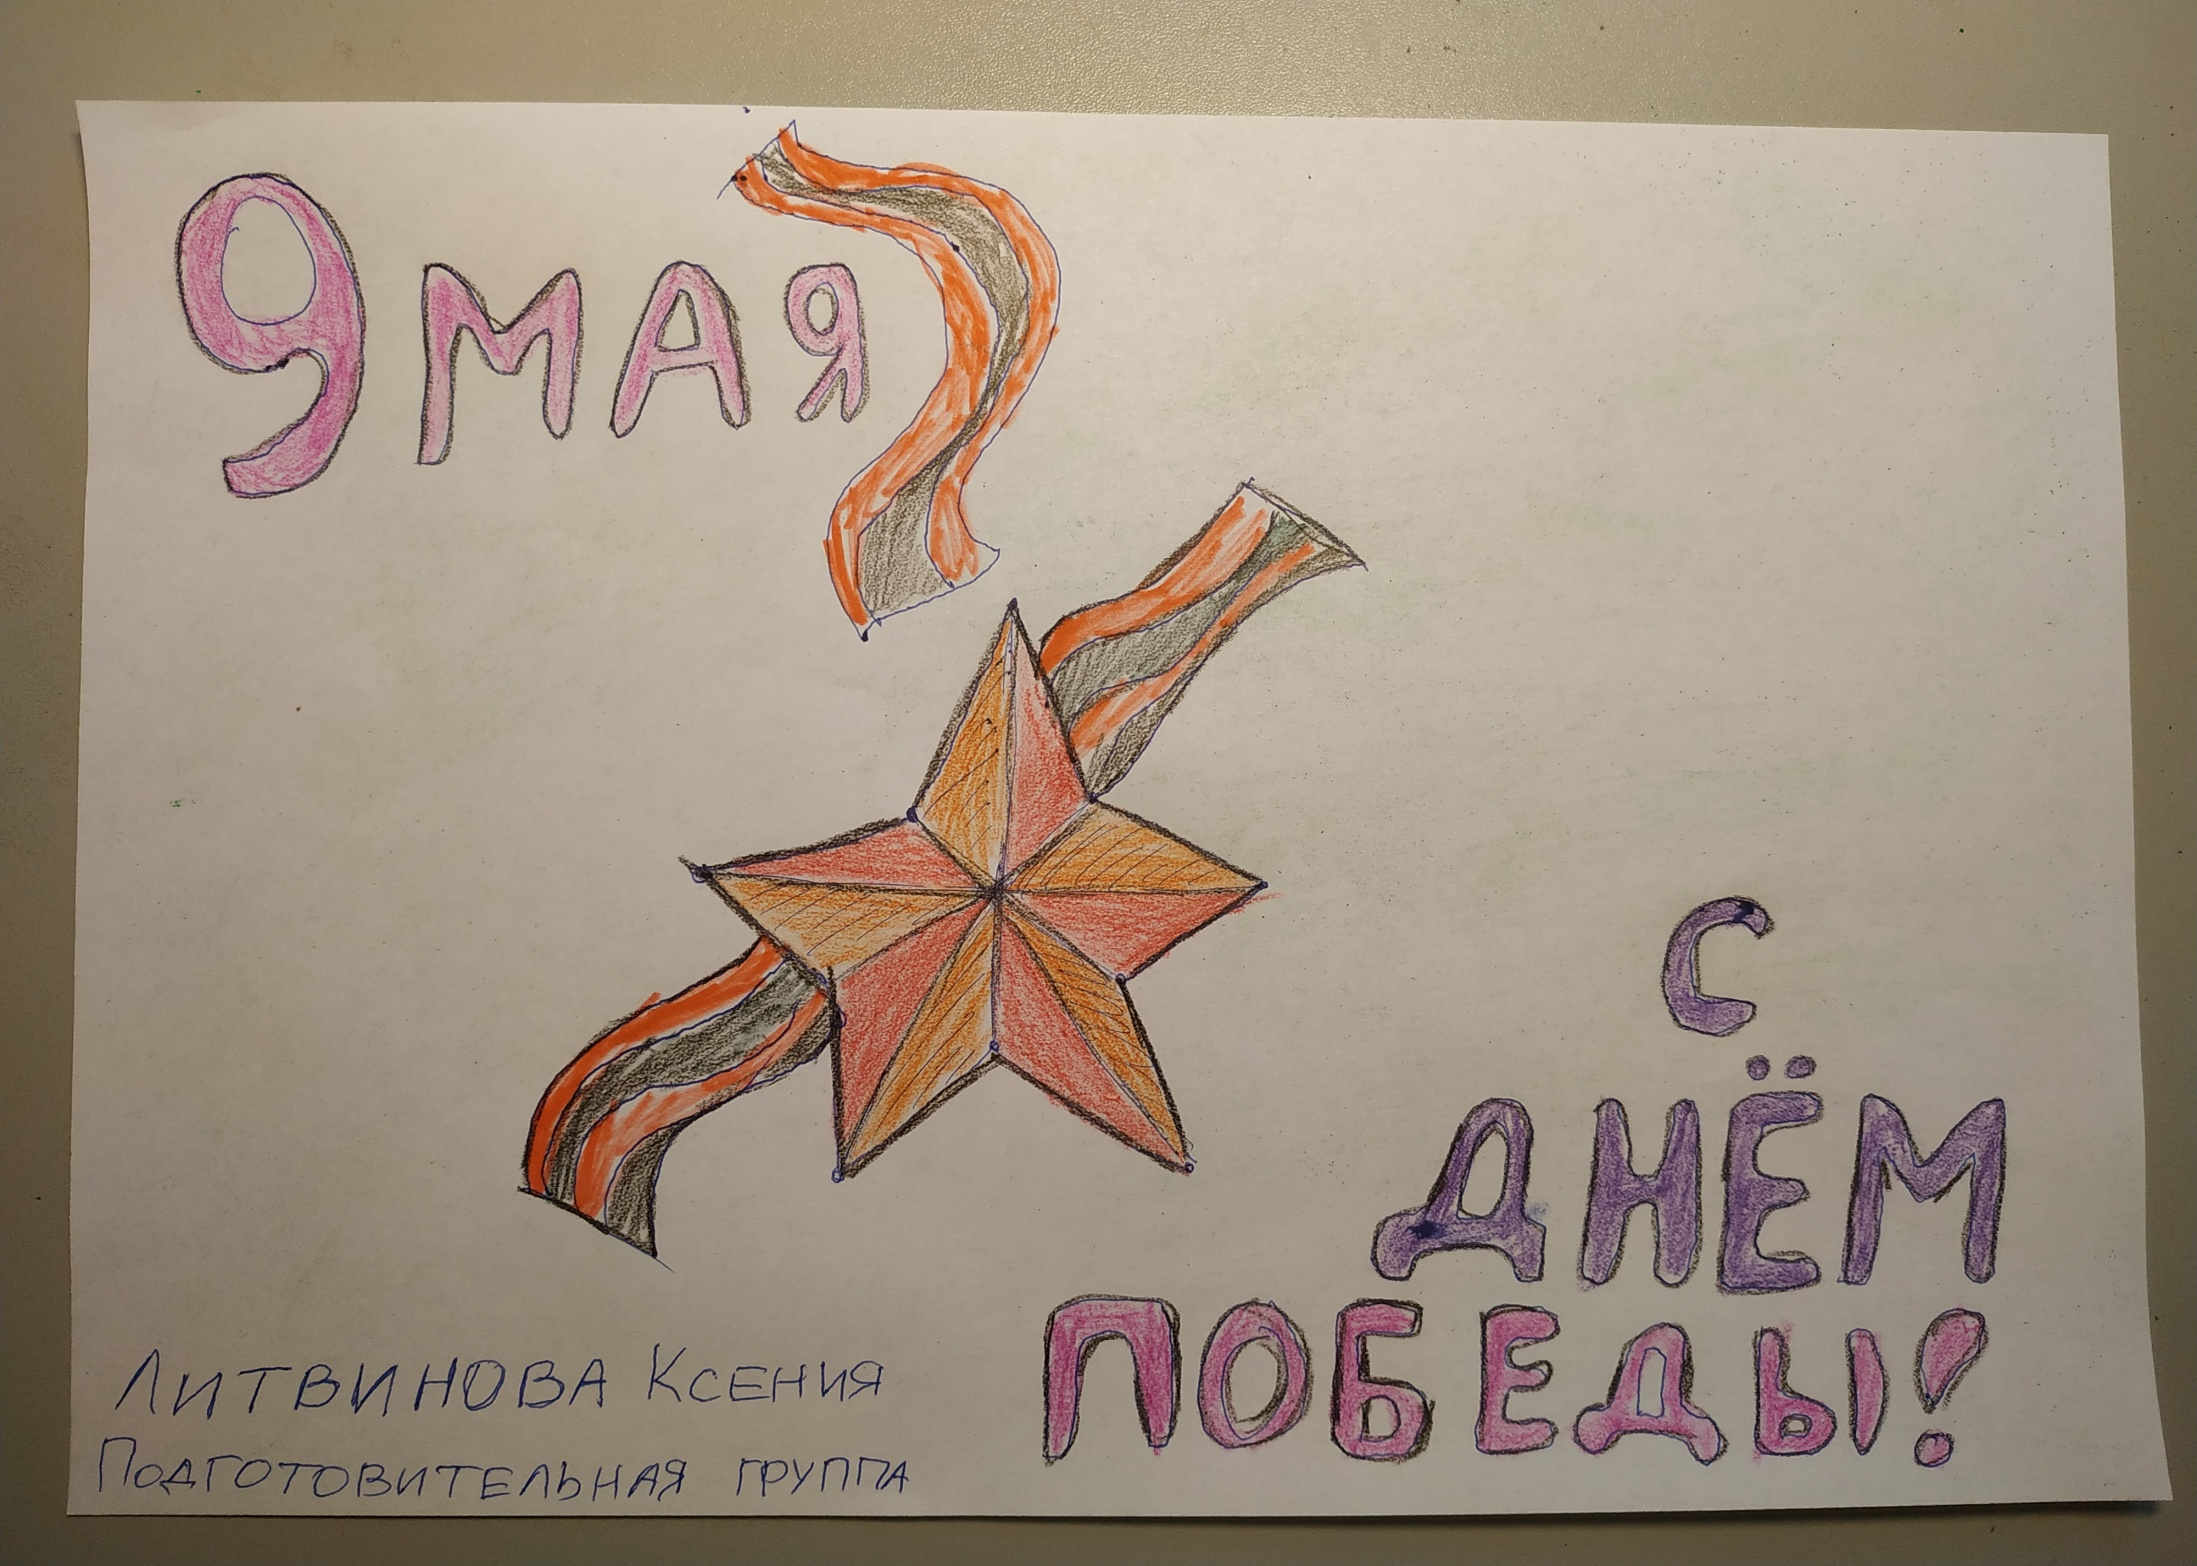 9 МАЯ
С
ДНЁМ
ПОБЕДЫ!
ЛИТВИНОВА КСЕНИЯ
ПОДГОТОВИТЕЛЬНАЯ ГРУППА